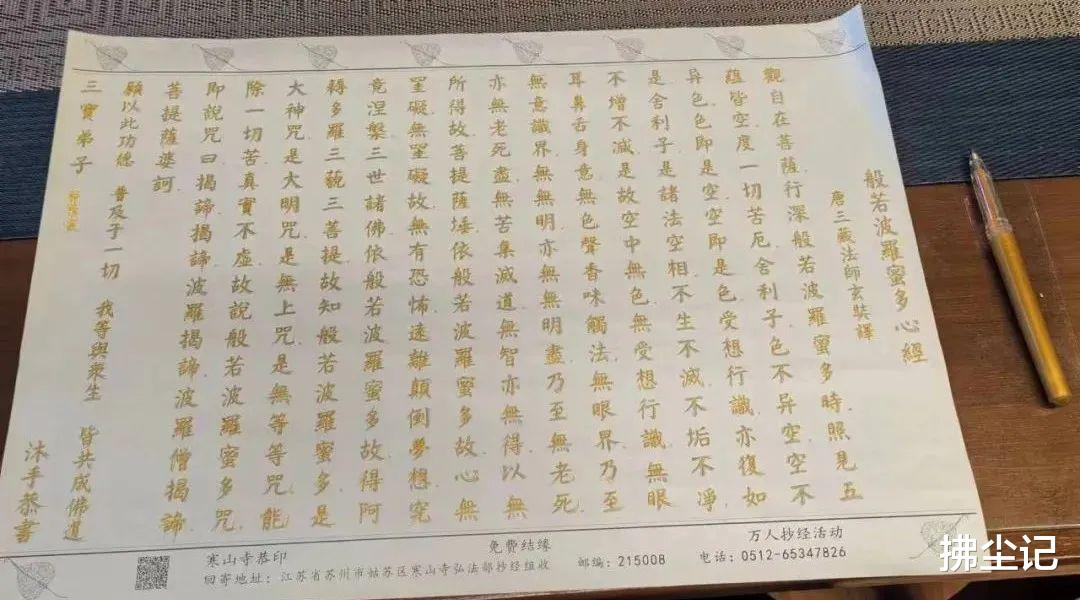 般若波羅蜜多心經
唐三藏法師玄奘譯
觀自在菩薩.行深般若波羅蜜多時.照見五
蘊皆空.度一切苦厄.舍利子.色不异空.空不
异色.色即是空.空即是色.受想行識.亦復如
是.舍利子.是諸法空相.不生不滅.不垢不淨.
不增不減.是故空中無色.無受想行識.無眼
耳鼻舌身意.無色聲香味觸法.無眼界.乃至
無意識界.無無明.亦無無明盡.乃至無老死.
亦無老死盡.無苦集滅道.無智亦無得.以無
所得故.菩提薩埵.依般若波羅蜜多故.心無
罣礙.無罣礙故.無有恐怖.遠離顛倒夢想.究
竟涅槃.三世諸佛.依般若波羅蜜多故.得阿
耨多羅三藐三菩提.故知般若波羅蜜多.是
大神咒.是大明咒.是無上咒.是無等等咒.能
除一切苦.真實不虛.故說般若波羅蜜多咒.
即說咒曰.揭諦揭諦.波羅揭諦.波羅僧揭諦.
菩提薩婆訶
願以此功德 普及于一切 我等與衆生 皆共成佛道
三寶弟子 沐手恭書
寒山寺恭印 免費结缘 万人抄经活动
回寄地址：江苏省苏州市姑苏区寒山寺弘法部抄经组收 邮编：215008 电话：0512-65347826
拂尘记